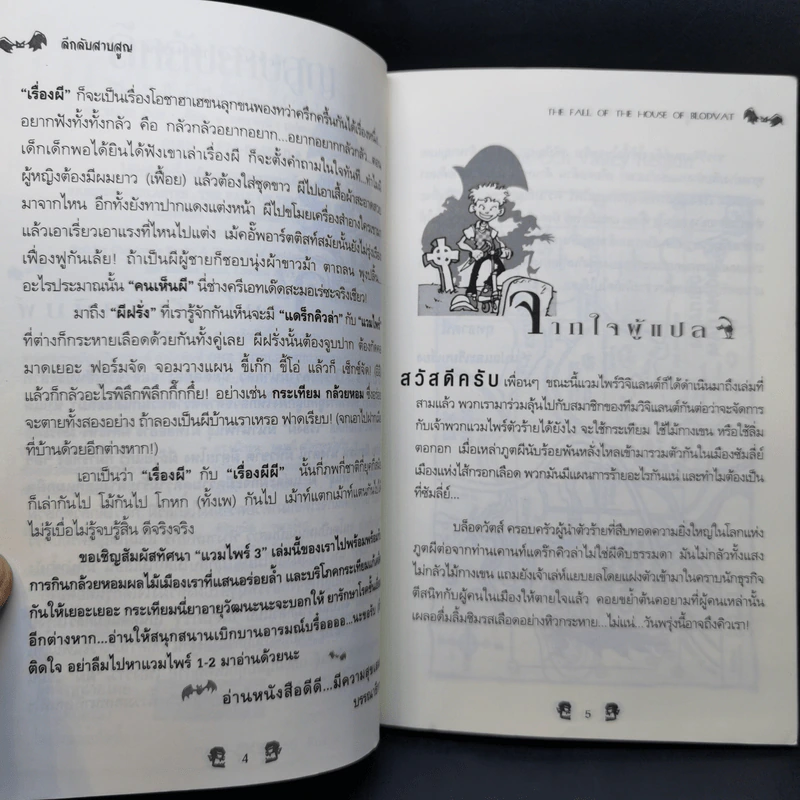 ลึกลับสาบสูญ
“เรื่องผี” ก็จะเป็นเรื่องโอชาฮาเฮขนลุกขนพองทว่าครึกครื้นกันได้เรื่องหนึ่ง
อยากฟังทั้งทั้งกลัว คือ กลัวกลัวอยากอยาก...อยากอยากกลัวกลัว...
เด็กเด็กพอได้ยินได้ฟังเขาเล่าเรื่องผี ก็จะตั้งคำถามในใจทันที...ทำไมผี
ผู้หญิงต้องมีผมยาว (เฟื้อย) แล้วต้องใส่ชุดขาว ผีไปเอาเสื้อผ้าสะอาด
มาจากไหน อีกทั้งยังทาปากแดงแต่งหน้า ผีไปขโมยเครื่องสำอางใคร
แล้วเอาเรี่ยวเอาแรงที่ไหนไปแต่ง เม้คอัพอาร์ตติสท์สมัยนั้นยังไม่รุ่งเรือง
เฟื่องฟูกันเล้ย! ถ้าเป็นผีผู้ชายก็ชอบนุ่งผ้าขาวม้า ตาถลน พุงปลิ้น...
อะไรประมาณนั้น “คนเห็นผี” นี่ช่างครีเอทเด๊ดสะมอเร่ซะจริงเชียว!
มาถึง “ผีฝรั่ง” ที่เรารู้จักกันเห็นจะมี “แดร็กคิวล่า” กับ “แวมไพร์”
ที่ต่างก็กระหายเลือดด้วยกันทั้งคู่เลย ผีฝรั่งนั้นต้องจูบปาก ต้องกัดคอ
มาดเยอะ ฟอร์มจัด จอมวางแผน ขี้เก๊ก ขี้โอ่ แล้วก็ เซ็กซ์จัด
แล้วก็กลัวอะไรพิลึกพิลึกกึ๊กกื๋ย! อย่างเช่น กระเทียม กล้วยหอม ซึ่ง
จะตายทั้งสองอย่าง ถ้าลองเป็นผีบ้านเราเหรอ ฟาดเรียบ! (จกเอาไปฝาก
ที่บ้านด้วยอีกต่างหาก!)
เอาเป็นว่า “เรื่องผี” กับ “เรื่องผีผี” นั้นกี่ภพกี่ชาติกี่ยุค
ก็เล่ากันไป โม้กันไป โกหก (ทั้งเพ) กันไป เม้าท์แตกเม้าท์แตนกันไป
ไม่รู้เบื่อไม่รู้จบรู้สิ้น ดีจริงจริง
ขอเชิญสัมผัสทัศนา “แวมไพร์ 3” เล่มนี้ของเราไปพร้อมพร้อมกับ
การกินกล้วยหอมผลไม้เมืองเราที่แสนอร่อยล้ำ และบริโภคกระเทียม
กันให้เยอะเยอะ กระเทียมนี่ยาอายุวัฒนะนะจะบอกให้ ยารักษาโรค
อีกต่างหาก...อ่านให้สนุกสนานเบิกบานอารมณ์บรื๋อออออ...นะขอรับ
ติดใจ อย่าลืมไปหาแวมไพร์ 1-2 มาอ่านด้วยนะ
อ่านหนังสือดีดี...มีความสุข
บรรณา
4
THE FALL OF THE HOUSE OF BLODVAT
จากใจผู้แปล
สวัสดีครับ เพื่อนๆ ขณะนี้แวมไพร์วิจิแลนต์ก็ได้ดำเนินมาถึงเล่มที่
สามแล้ว พวกเรามาร่วมลุ้นไปกับสมาชิกของทีมวิจิแลนต์กันต่อว่าจะจัดการ
กับเจ้าพวกแวมไพร์ตัวร้ายได้ยังไง จะใช้กระเทียม ใช้ไม้กางเขน หรือใช้ลิ่ม
ตอกอก เมื่อเหล่าภูตผีนับร้อยพันหลั่งไหลเข้ามารวมตัวกันในเมืองซัมลี่ย์
เมืองแห่งไส้กรอกเลือด พวกมันมีแผนการร้ายอะไรกันแน่ และทำไมต้องเป็น
ที่ซัมลี่ย์...
บล็อดวัตส์ ครอบครัวผู้นำตัวร้ายที่สืบทอดความยิ่งใหญ่ในโลกแห่ง
ภูตผีต่อจากท่านเคานท์แดร็กคิวล่าไม่ใช่ผีดิบธรรมดา มันไม่กลัวทั้งแสง
ไม่กลัวไม้กางเขน แถมยังเจ้าเล่ห์แยบยลโดยแฝงตัวเข้ามาในคราบนักธุรกิจ
ตีสนิทกับผู้คนในเมืองให้ตายใจแล้ว คอยขย้ำต้นคอยามที่ผู้คนเหล่านั้น
เผลอดื่มลิ้มชิมรสเลือดอย่างหิวกระหาย...ไม่แน่...วันพรุ่งนี้อาจถึงคิวเรา!
5